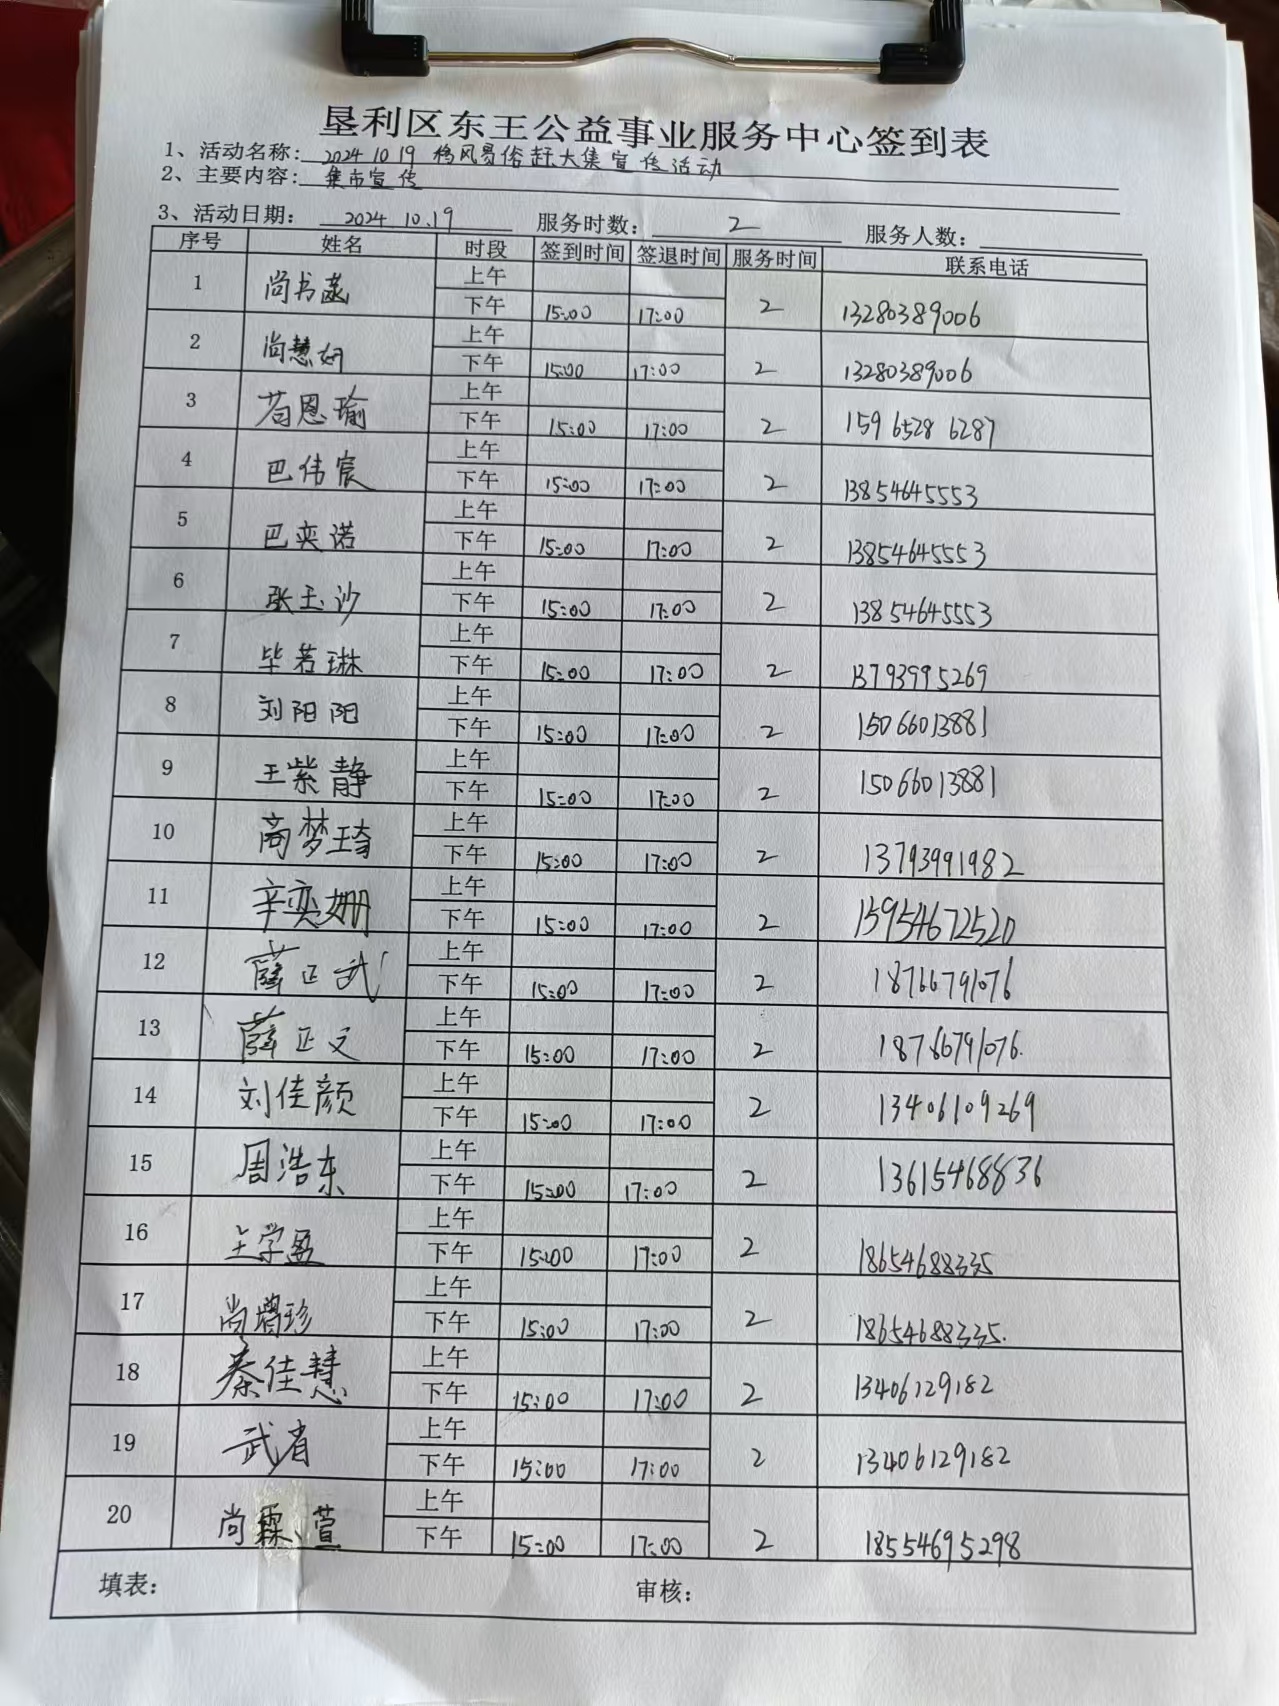 垦利区东王公益事业服务中心签到表
1、活动名称: 2024 10 19 移风易俗赶大集宣传活动
2、主要内容: 集市宣传
3、活动日期: 2024.10.19 服务时数: 2 服务人数:
序号 姓名 时段 签到时间 签退时间 服务时间 联系电话
上午
1 尚书 2 13280389006
下午 15:00 17:00
上午
2 尚慧妍 2 13280389006
下午 15:00 17:00
上午
3 苟恩瑜 2 159 6528 6287
下午 15:00 17:00
上午
4 巴伟宸 2 13854645553
下午 15:00 17:00
上午
5 巴奕诺 2 13854645553
下午 15:00 17:00
上午
6 张玉沙 2 13854645553
下午 15:00 17:00
上午
7 毕若琳 2 13793995269
下午 15:00 17:00
上午
8 刘阳阳 2 15066013881
下午 15:00 17:00
上午
9 王紫静 2 15066013881
下午 15:00 17:00
上午
10 商梦琦 2 13793991982
下午 15:00 17:00
上午
11 辛奕姗 2 13954672520
下午 15:00 17:00
上午
12 薛正武 2 18766791076
下午 15:00 17:00
上午
13 薛正文 2 18766791076.
下午 15:00 17:00
上午
14 刘佳颜 2 13406109269
下午 15:00 17:00
上午
15 周浩东 2 13615468836
下午 15:00 17:00
上午
16 王学盈 2 18654688335
下午 15:00 17:00
上午
17 尚增珍 2 18654688335.
下午 15:00 17:00
上午
18 秦佳慧 2 13406129182
下午 15:00 17:00
上午
19 武省 2 13406129182
下午 15:00 17:00
上午
20 尚霖萱 2 18554695298
下午 15:00 17:00
填表: 审核: